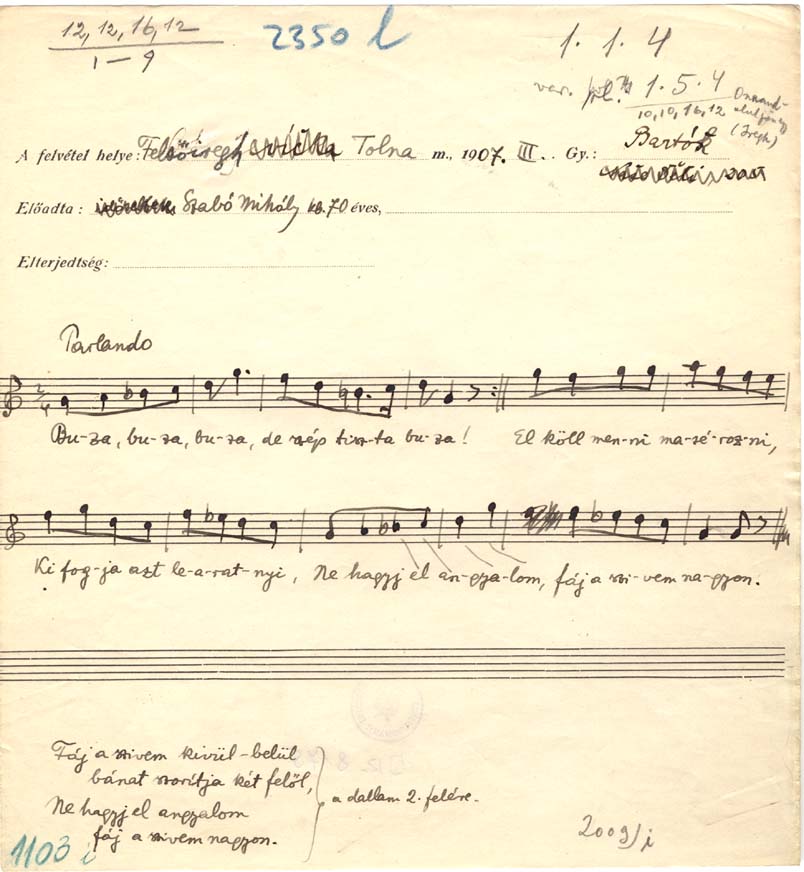 12, 12, 16, 12
1-9
2350 l
1. 1. 4
var. 1. 5. 4
10, 10, 16, 12
(Iregh)
A felvétel helye: Felsőiregh Tolna m., 1907. III. Gy.: Bartók
Előadta: Szabó Mihály kb. 70 éves,
Elterjedtség:
Parlando
2/4
Bu-za, bu-za, bu-za, de szép tisz-ta bu-za! El köll men-ni ma-sé-roz-ni,
Ki fog-ja azt le-a-rat-nyi, Ne hagyj el an-gya-lom, fáj a szi-vem na-gyon.
Fáj a szivem kivül-belül
bánat szorítja két felől,
Ne hagyj el angyalom
fáj a szivem nagyon.
a dallam 2. felére.
1103 i
2009/i